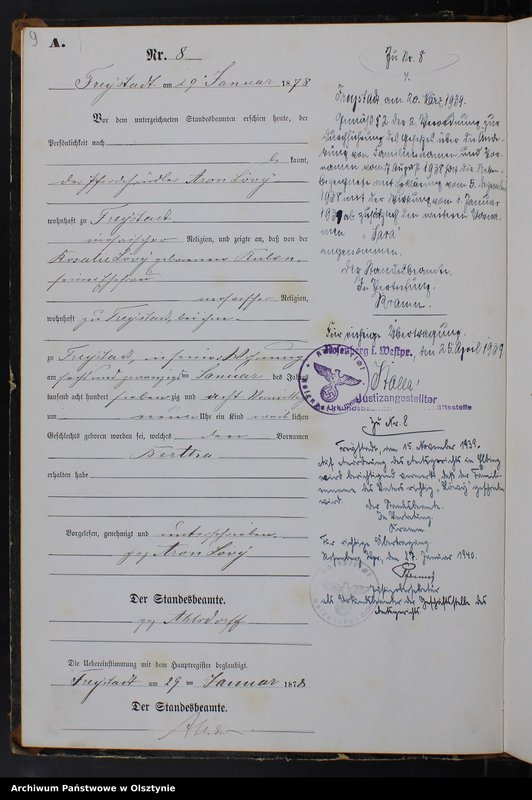 9
A.
Nr. 8
Freystadt am 29 Januar 1878
Vor dem unterzeichneten Standesbeamten erschien heute, der
Persönlichkeit nach
be kannt,
der Pferdehändler Aron Lövy
wohnhaft zu Freystadt
mosaischer Religion, und zeigte an, daß von der
Rosalie Lövy geborenen Rubon,
seiner Ehefrau
mosaischer Religion,
wohnhaft zu Freystadt, bei ihm
zu Freystadt, in seiner Wohnung
am sechs und zwanzigsten Januar des Jahres
tausend acht hundert sieben zig und acht Vormittags
um neun Uhr ein Kind weiblichen
Geschlechts geboren worden sei, welches den Vornamen
Bertha
erhalten habe
Vorgelesen, genehmigt und unterschrieben.
gez Aron Lövy
Der Standesbeamte.
gez Ahlsdorff
Die Uebereinstimmung mit dem Hauptregister beglaubigt.
Freystadt am 29 ten Januar 1878
Der Standesbeamte.
Zu Nr. 8
Freystadt am 20. März 1939.
Gemäß § 2 der 2. Verordnung zur
Durchführung des Gesetzes über die Ände-
rung von Familiennamen und Vor-
namen vom 17 August 1938 hat die Neben-
bezeichnete mit Erklärung vom 5. Dezember
1938 mit der Wirkung vom 1. Januar
1939 ab zusätzlich den weiteren Vorna-
men "Sara"
angenommen.
Der Standesbeamte.
In Vertretung.
Kramm.
Für richtige Übertragung.
Rosenberg i. Westpr., den 25. April 1939
Justizangestellter
Zu Nr. 8
Freystadt, am 15. November 1939.
Auf Anordnung des Amtsgerichts in Elbing
wird berichtigend vermerkt, daß der Familien-
name des Vaters richtig "Löwy" geschrieben
wird.
Der Standesbeamte.
In Vertretung
Kramm
Für richtige Übertragung
Rosenberg Wpr., den 27. Januar 1940.
Justizsekretär
als Urkundsbeamter der Geschäftsstelle des
Amtsgerichts
Archiwum Państwowe w Olsztynie